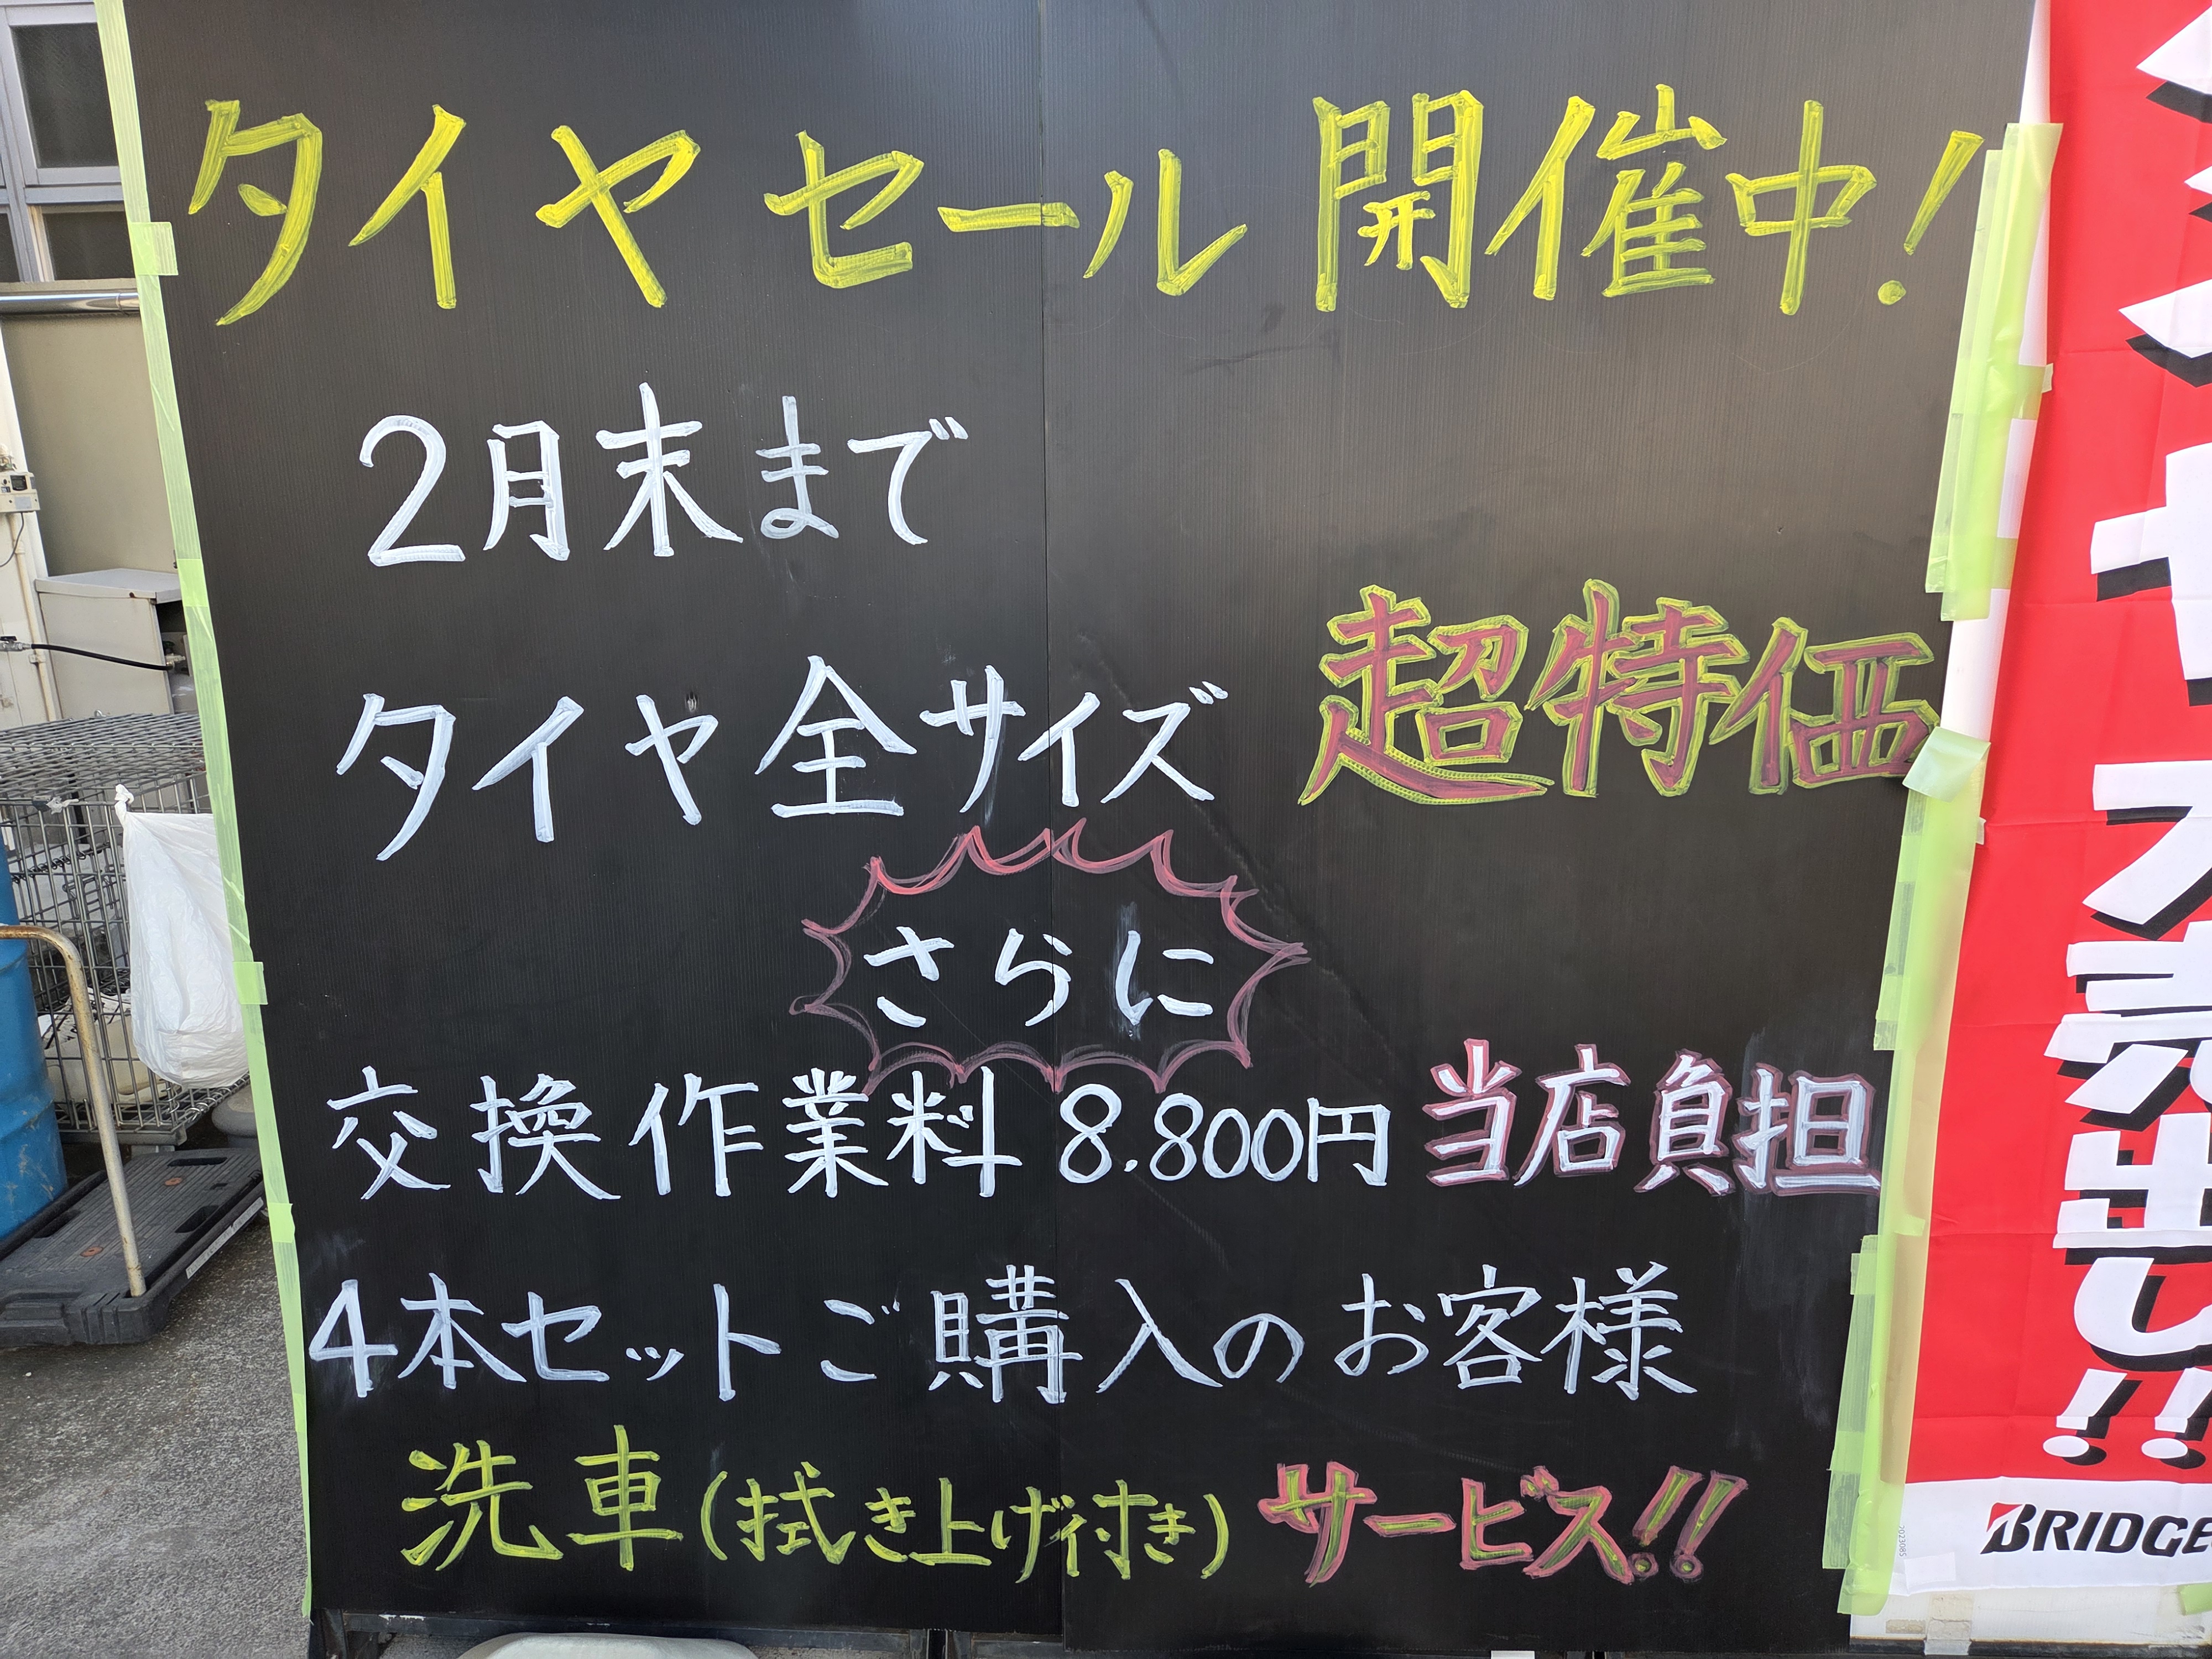 タイヤ セール 開催中!
2月末まで
タイヤ全サイズ 超特価
さらに
交換作業料 8.800円 当店負担
4本セットご購入のお客様
洗車(拭き上げ付き) サービス!!
大売出し!!
BRIDGE